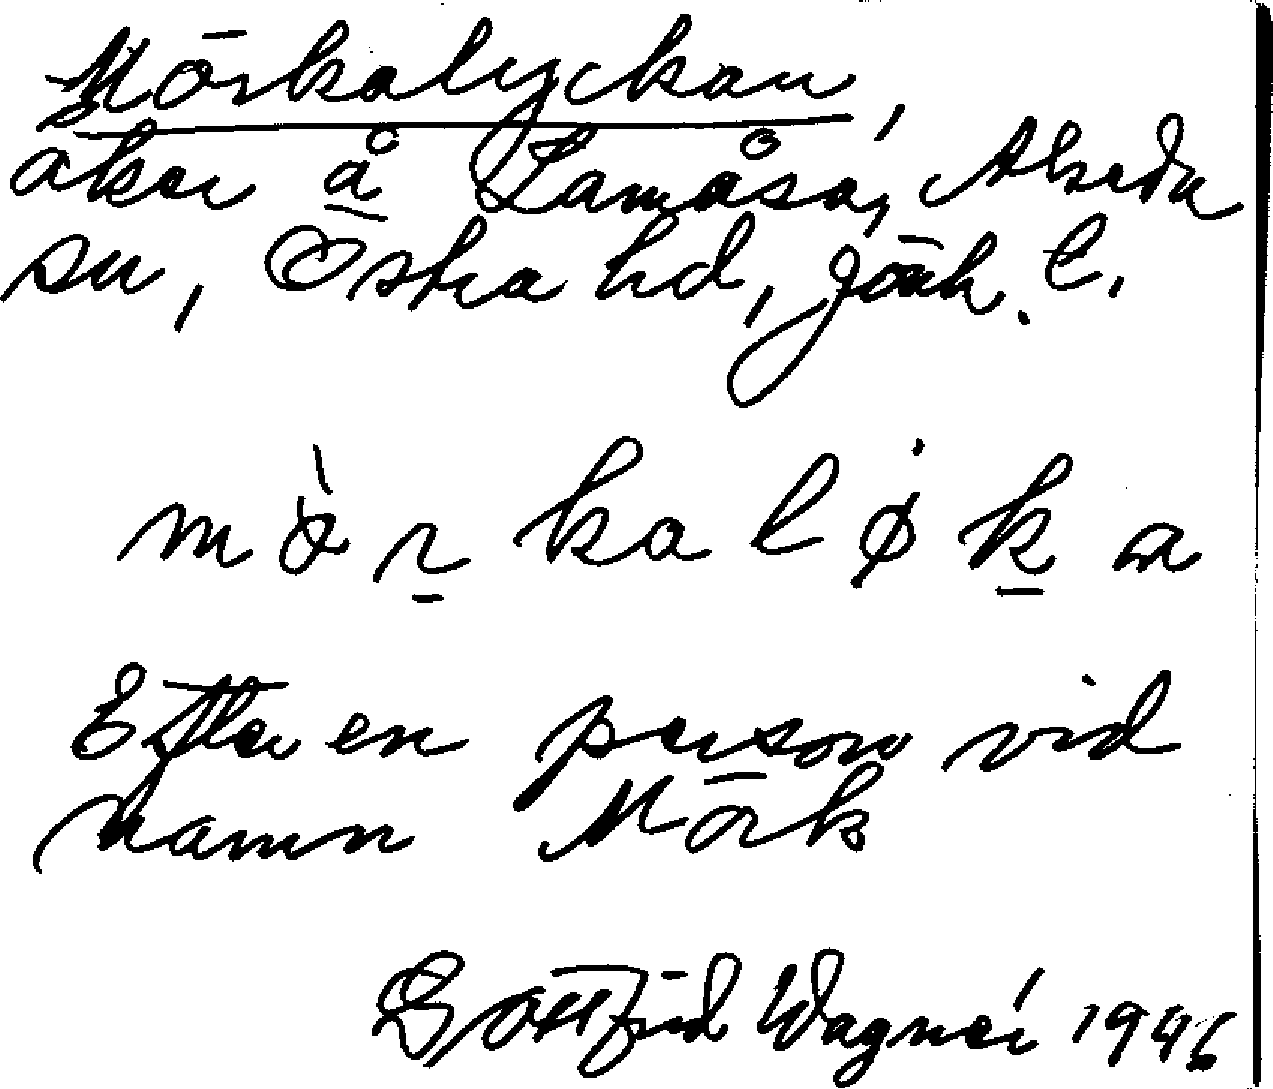 Mörkalyckan,
åker å Lamåsa, Alseda
sn, Östra hd, Jönk. l.
mòrkaløka
Efter en person vid
namn Mörk
Gottfrid Wagnér 1946